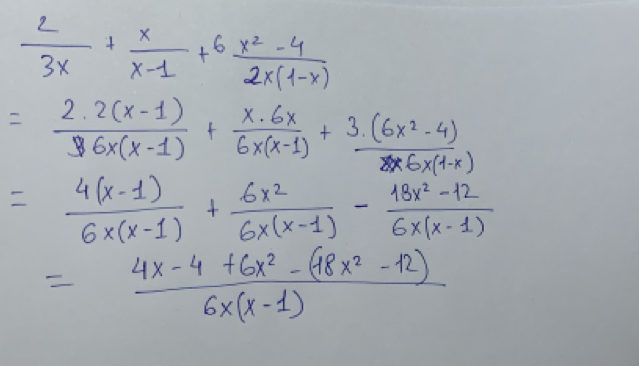 2/3x + x/x-1 + 6x² - 4/2x(1-x)
= 2.2(x-1)/6x(x-1) + x.6x/6x(x-1) + 3.(6x² - 4)/6x(1-x)
= 4(x-1)/6x(x-1) + 6x²/6x(x-1) - 18x² - 12/6x(x-1)
= 4x - 4 + 6x² - (18x² - 12)/6x(x-1)